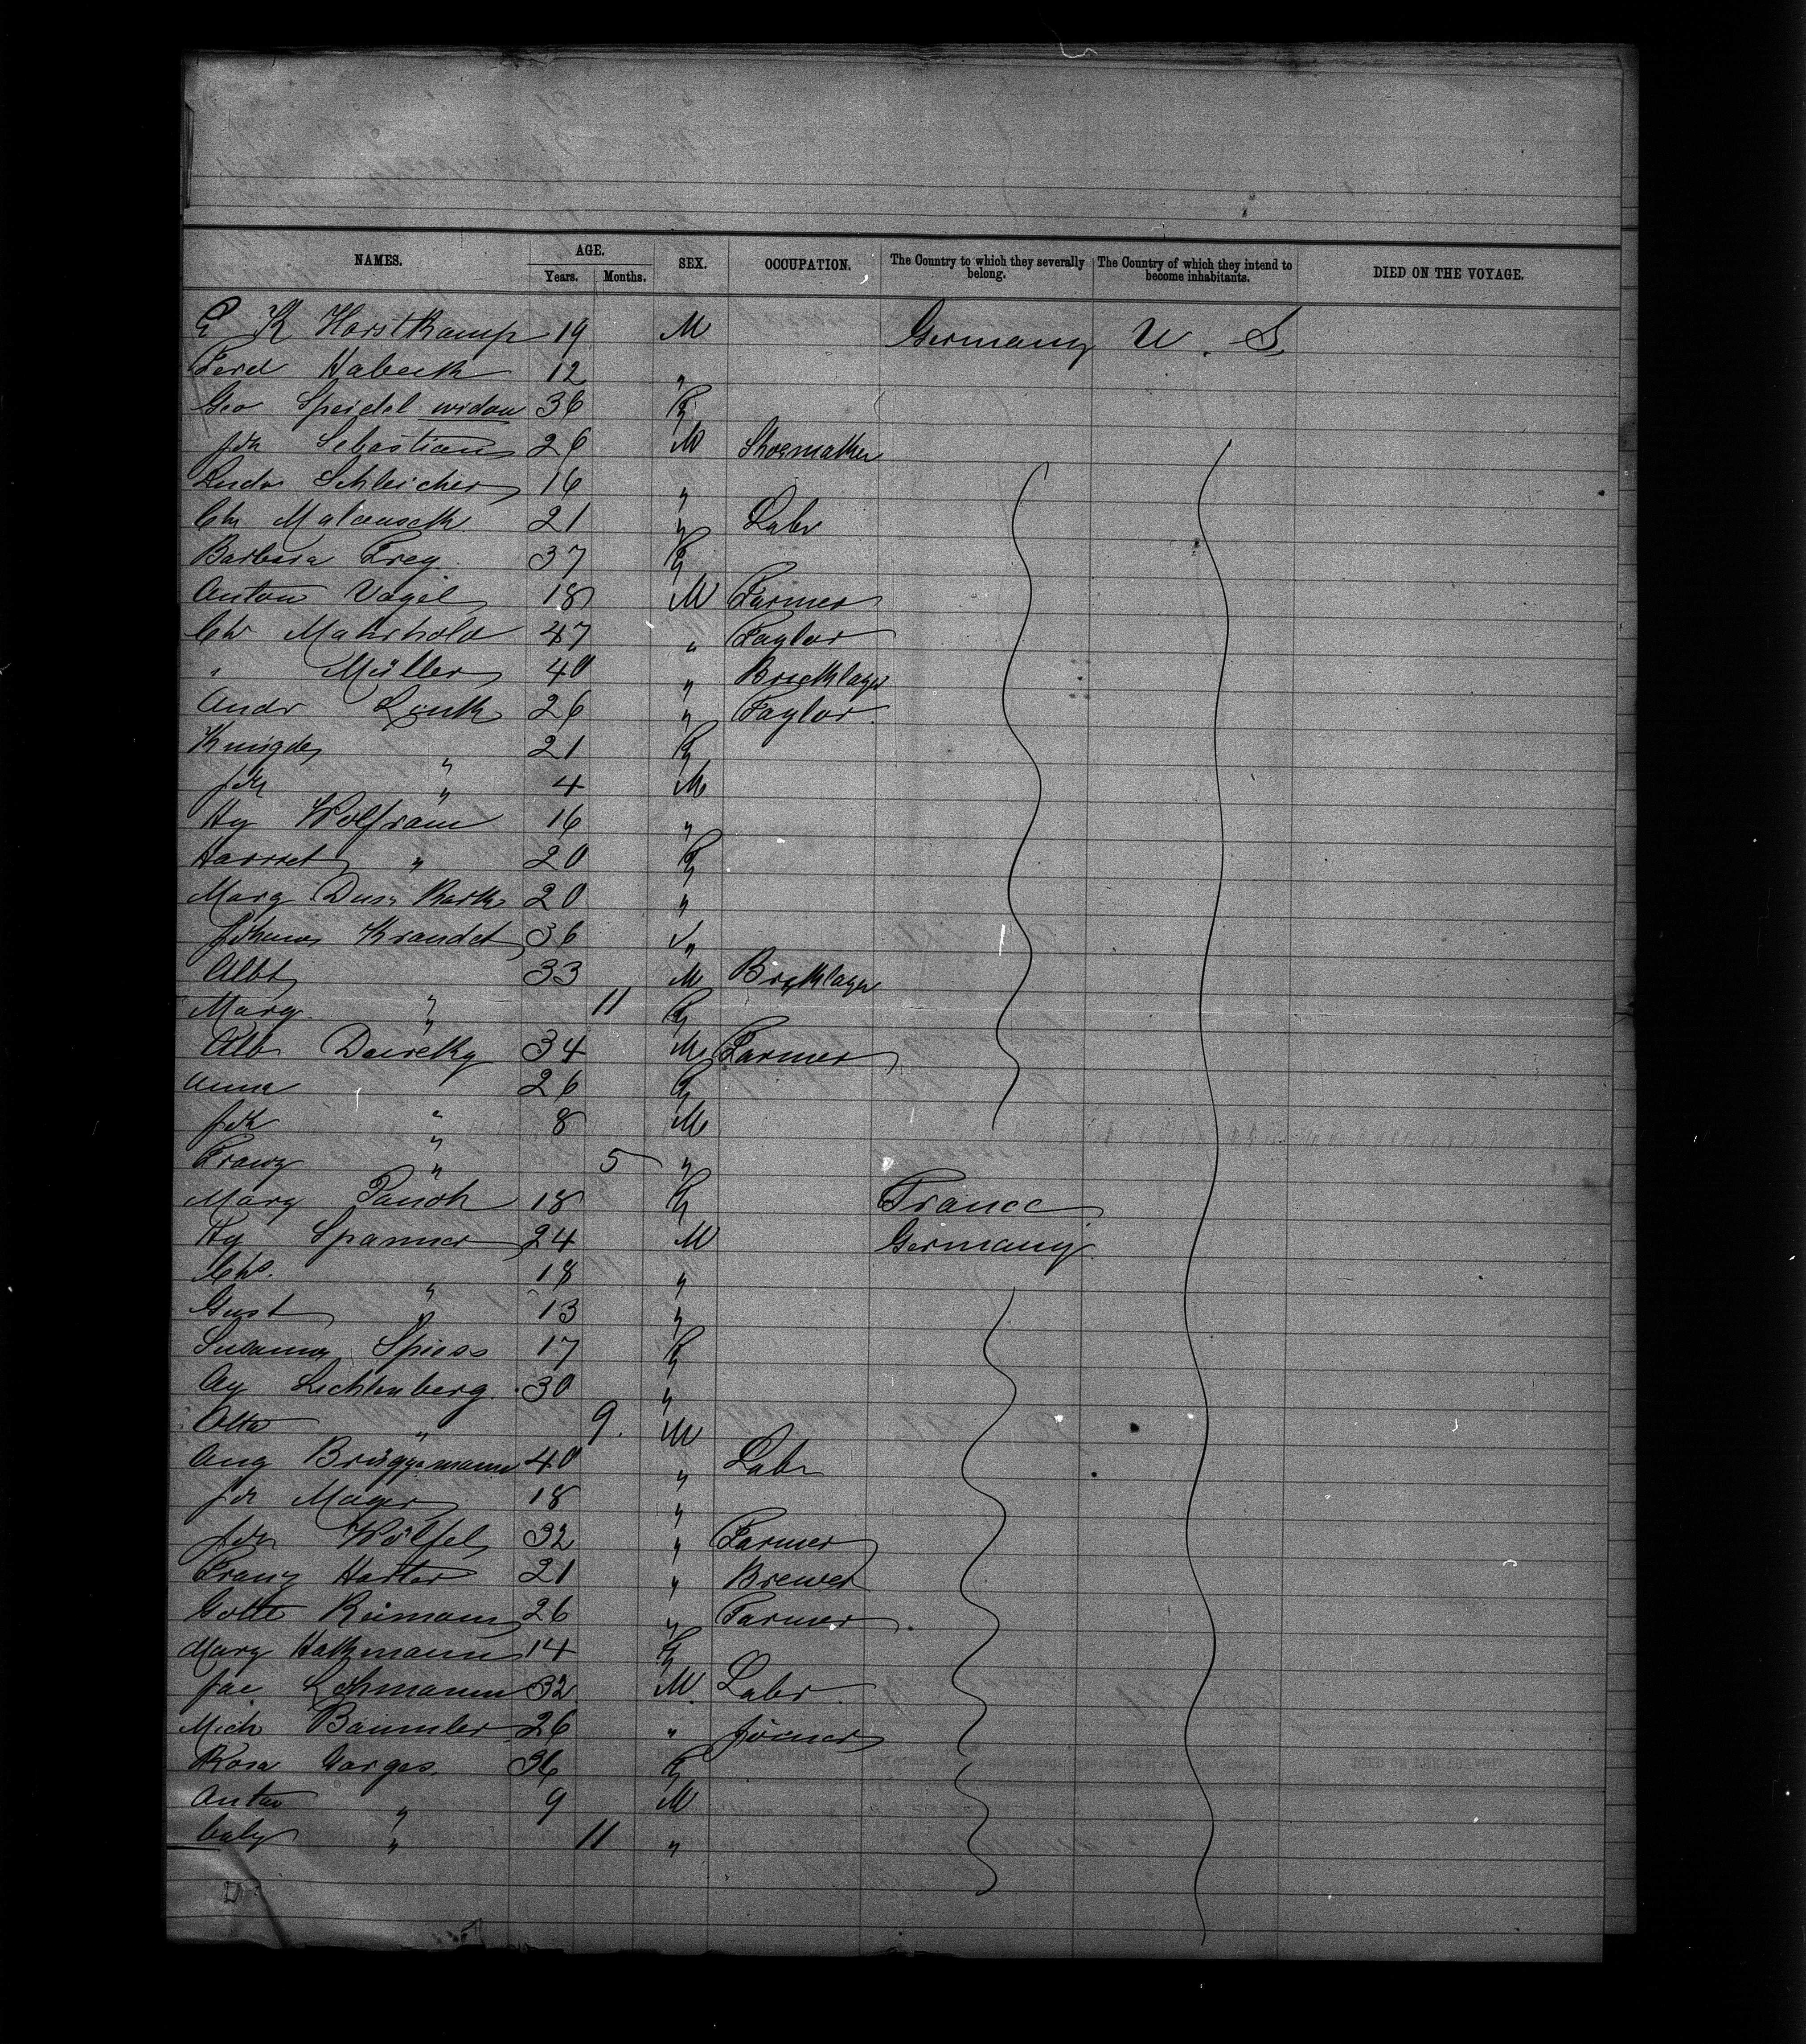 NAMES. AGE. Years. Months. SEX. OCCUPATION. The Country to which they severally belong. The Country of which they intend to become inhabitants. DIED ON THE VOYAGE.
E K Horstkamp 19 M Germany U. S
Ferd Habeck 12 "
Geo Speidel widow 36 F
Joh Sebastian 26 M Shoemaker
Ludw Schleicher 16 "
Chr Malauseck 21 " Labr
Barbara Frey 37 F
Anton Vogel 18 M Farmer
Chr Mahrhold 47 " Taylor
" Müller 40 " Bricklayer
Andr Link 26 " Taylor
21 F
Joh " 4 M
Hy Wolfram 16 "
Harriet " 20 F
Marg 20 "
Johanna Krandel 36 "
Albt " 33 M Bricklayer
Marg " 11 F
Alb 34 M Farmer
Anna " 26 F
Joh " 8 M
Franz " 5 "
Mary 18 F France
Hy Spanner 24 M Germany
Chs. " 18 "
Gust " 13 "
Susanna Spiess 17 F
Ag Lichtenberg 30 "
Otto " 9 M
Aug Brüggemann 40 " Labr
Joh Mayer 18 "
Joh Wölfel 32 " Farmer
Franz Harter 21 " Brewer
Gottl Reimann 26 " Farmer
Mary Hakmann 14 F
Jac Lohmann 32 M Labr
Mich Baumler 26 " Joiner
Rosa Varges 36 F
Anton " 9 M
" 11 "